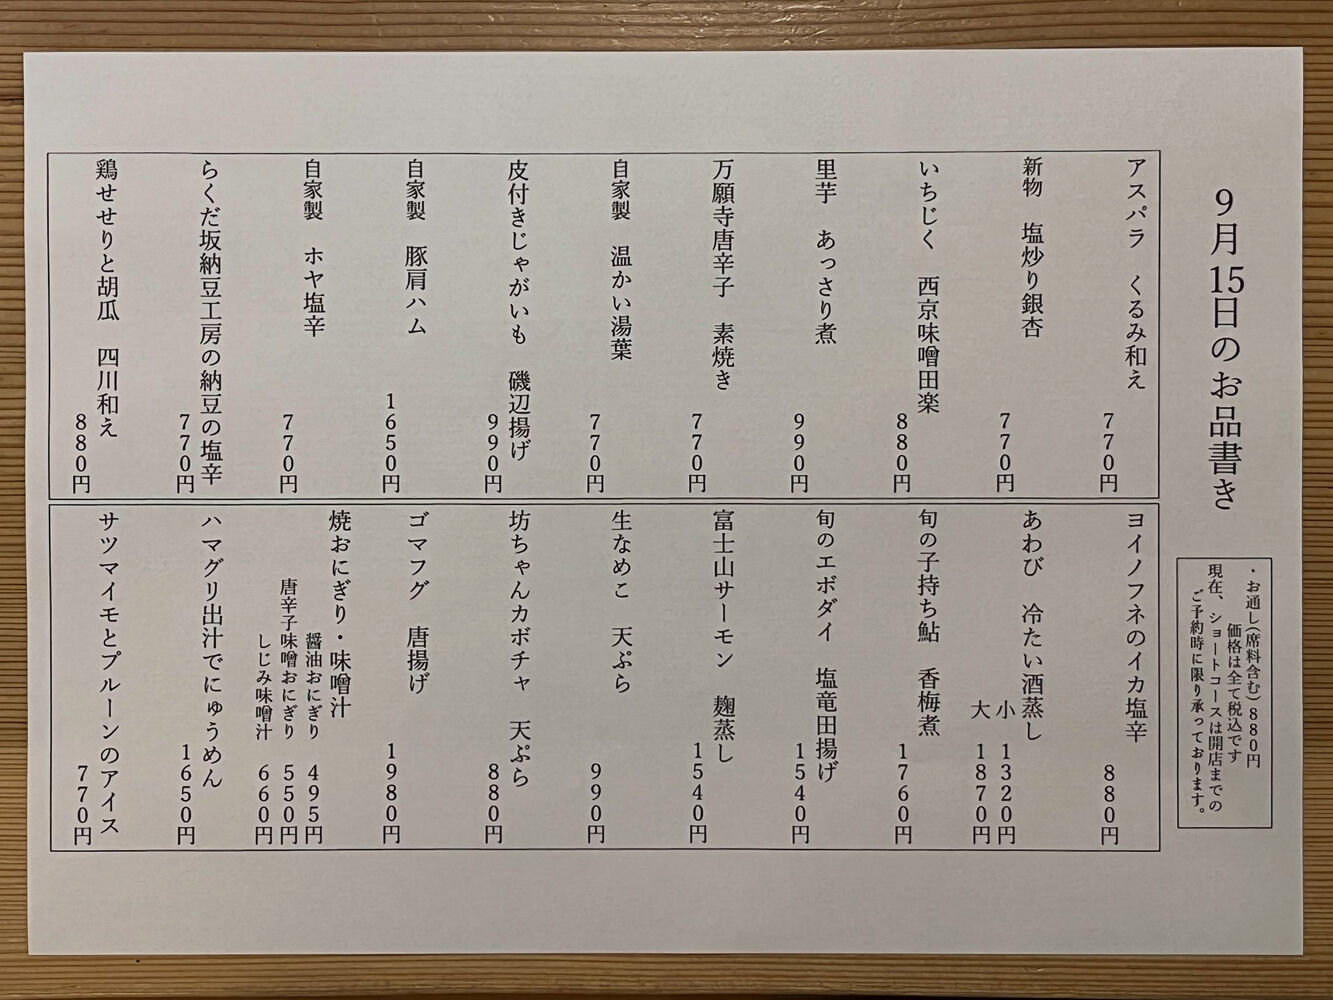 9月15日のお品書き
・お通し(席料含む)880円
価格は全て税込です
現在、ショートコースは開店までの
ご予約時に限り承っております。
アスパラ くるみ和え
770円
新物 塩炒り銀杏
770円
いちじく 西京味噌田楽
880円
里芋 あっさり煮
990円
万願寺唐辛子 素焼き
770円
自家製 温かい湯葉
770円
皮付きじゃがいも 磯辺揚げ
990円
自家製 豚肩ハム
1650円
自家製 ホヤ塩辛
770円
らくだ坂納豆工房の納豆の塩辛
770円
鶏せせりと胡瓜 四川和え
880円
ヨイノフネのイカ塩辛
880円
あわび 冷たい酒蒸し
小 1320円
大 1870円
旬の子持ち鮎 香梅煮
1760円
旬のエボダイ 塩竜田揚げ
1540円
富士山サーモン 麹蒸し
1540円
生なめこ 天ぷら
990円
坊ちゃんカボチャ 天ぷら
880円
ゴマフグ 唐揚げ
1980円
焼おにぎり・味噌汁
醤油おにぎり 495円
唐辛子味噌おにぎり 550円
しじみ味噌汁 660円
ハマグリ出汁でにゅうめん
1650円
サツマイモとプルーンのアイス
770円